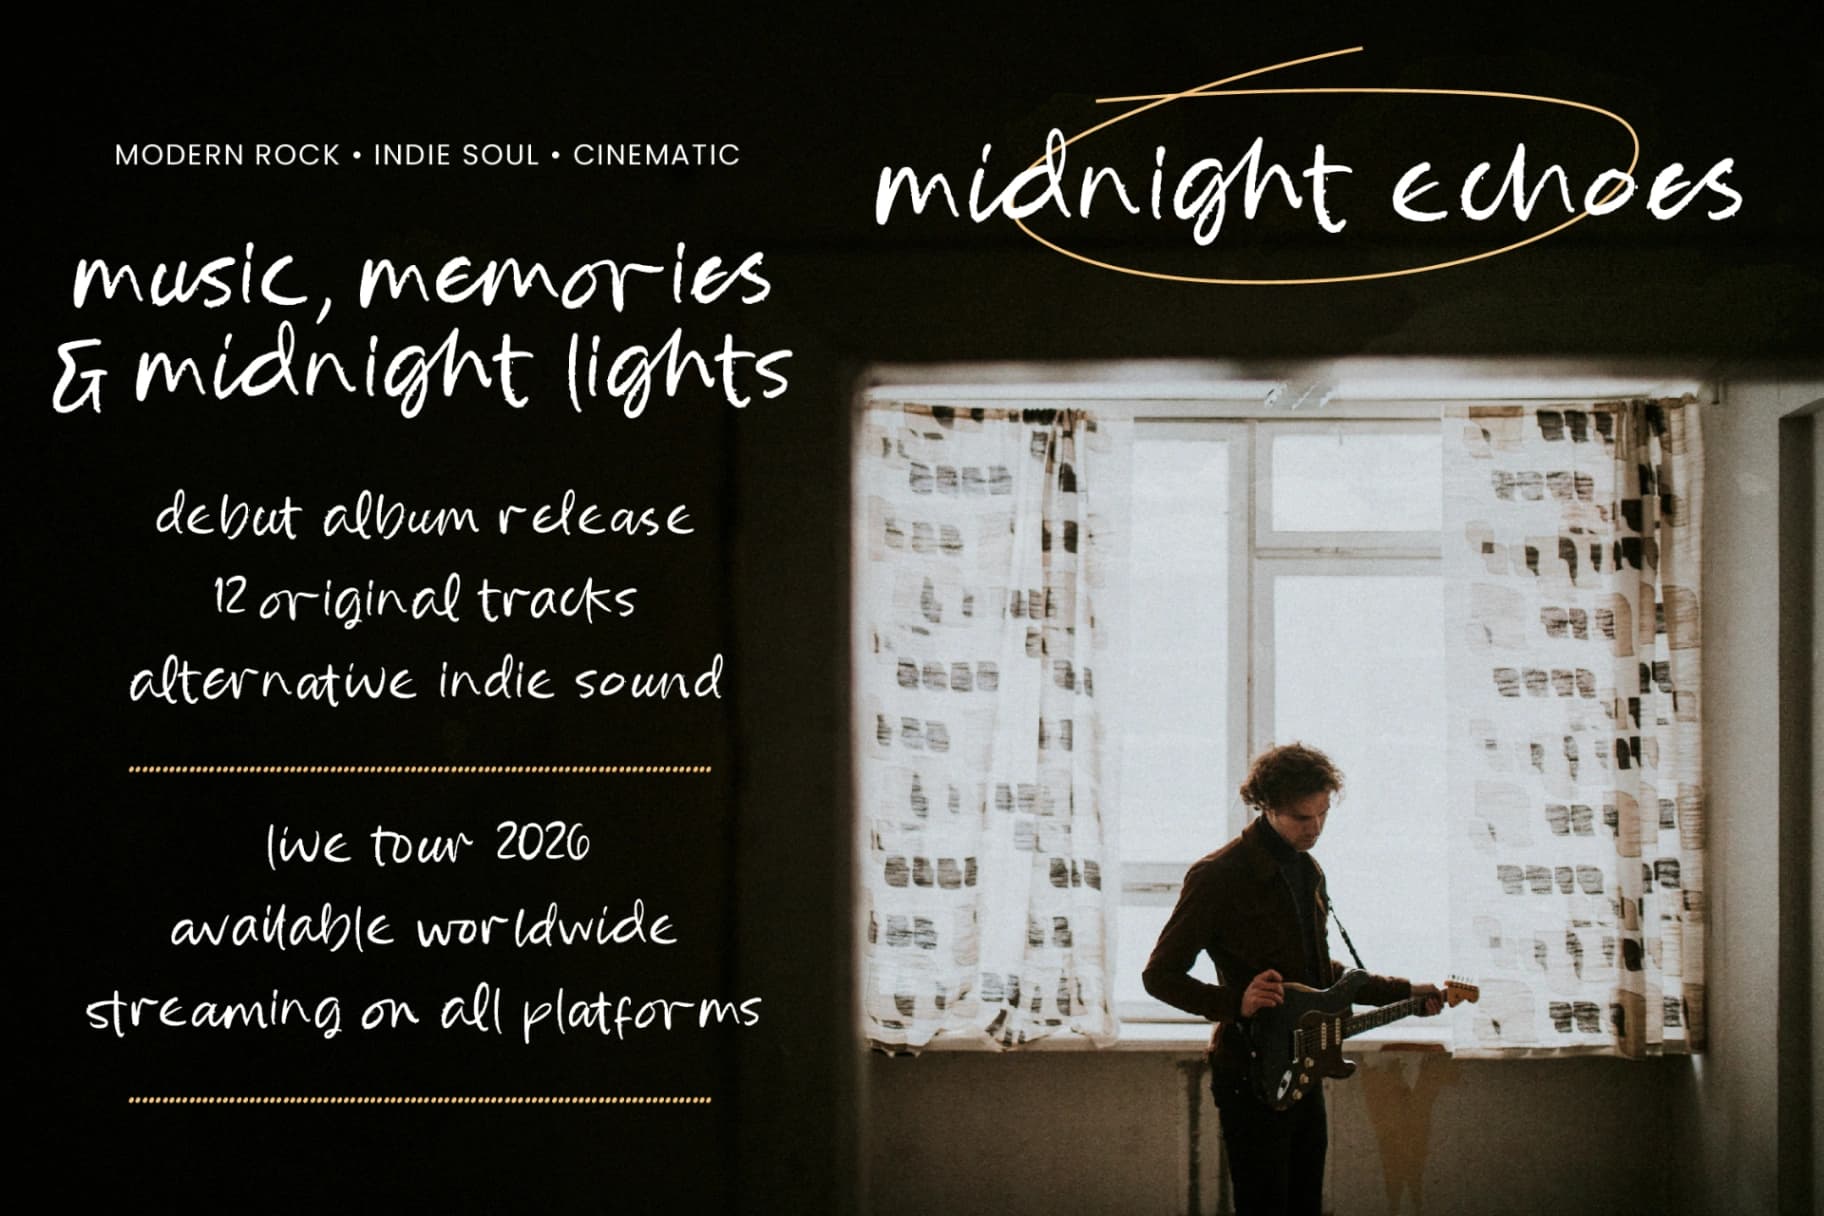 MODERN ROCK • INDIE SOUL • CINEMATIC
music, memories
& midnight lights
debut album release
12 original tracks
alternative indie sound
live tour 2026
available worldwide
streaming on all platforms
midnight echoes